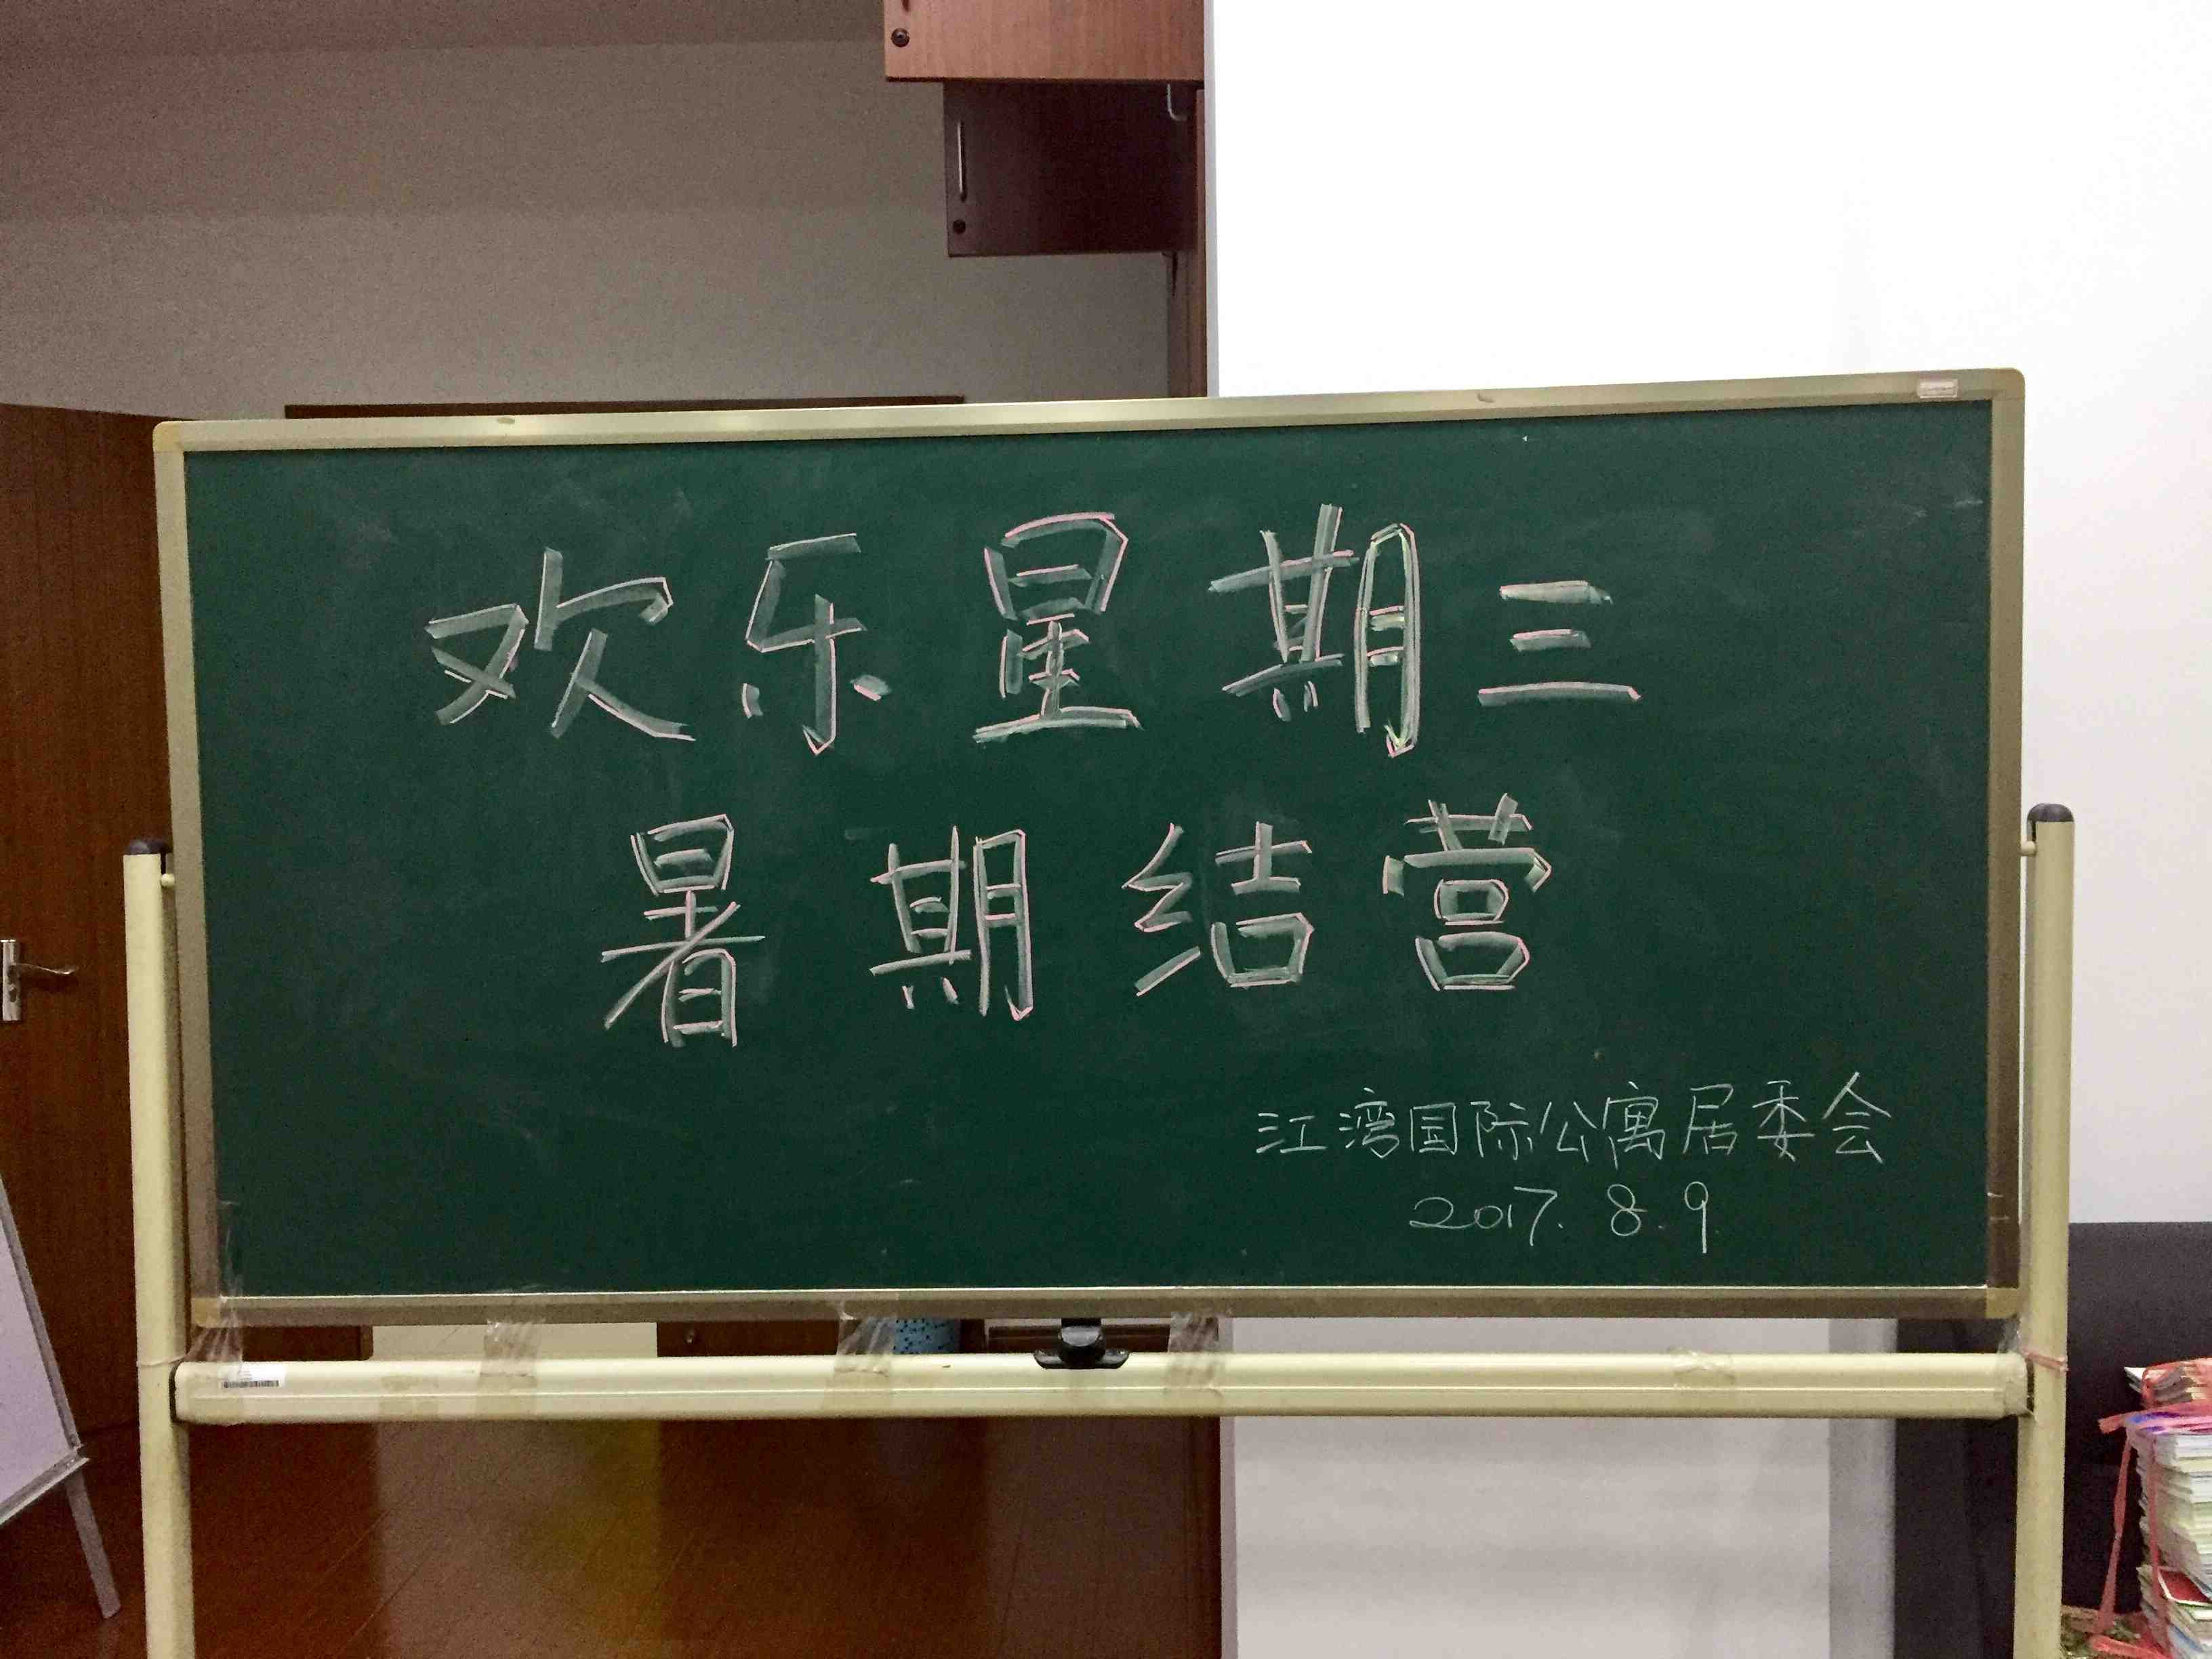 欢乐星期三
暑期结营
江湾国际公寓居委会
2017.8.9